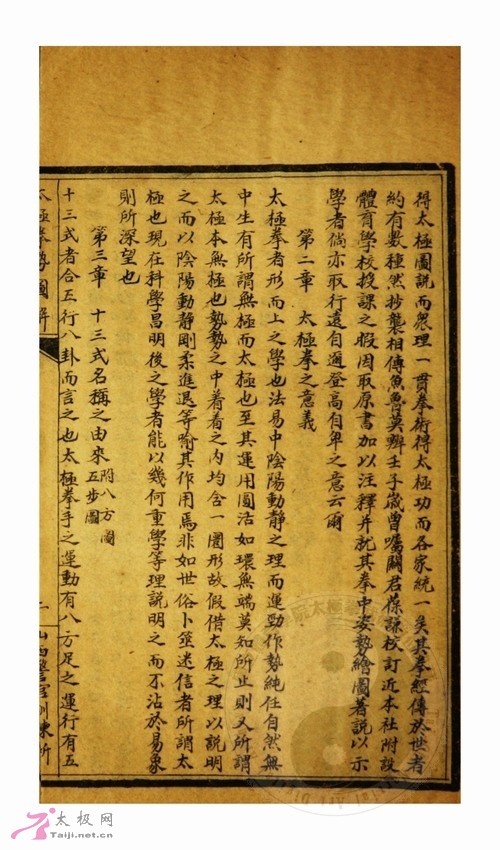 得太極圖說而衆理一貫拳術得太極功而各家統一矣其拳經傳於世者
約有數種然抄襲相傳魚魯莫辨壬子歲曾囑關君葆謙校訂近本社附設
體育學校授課之暇因取原書加以注釋并就其拳中姿勢繪圖著說以示
學者倘亦取行遠自邇登高自卑之意云爾
第二章 太極拳之意義
太極拳者形而上之學也法易中陰陽動靜之理而運勁作勢純任自然無
中生有所謂無極而太極也至其運用圓活如環無端莫知所止則又所謂
太極本無極也勢勢之中着着之內均含一圈形故假借太極之理以說明
之而以陰陽動靜剛柔進退等喻其作用焉非如世俗卜筮迷信者所謂太
極也現在科學昌明後之學者能以幾何重學等理說明之而不沾於易象
則所深望也
第三章 十三式名稱之由來 附八方圖 五步圖
十三式者合五行八卦而言之也太極拳手之運動有八方足之運行有五
太極拳勢圖解
二 山西警官訓練所
太极网
Taiji.net.cn